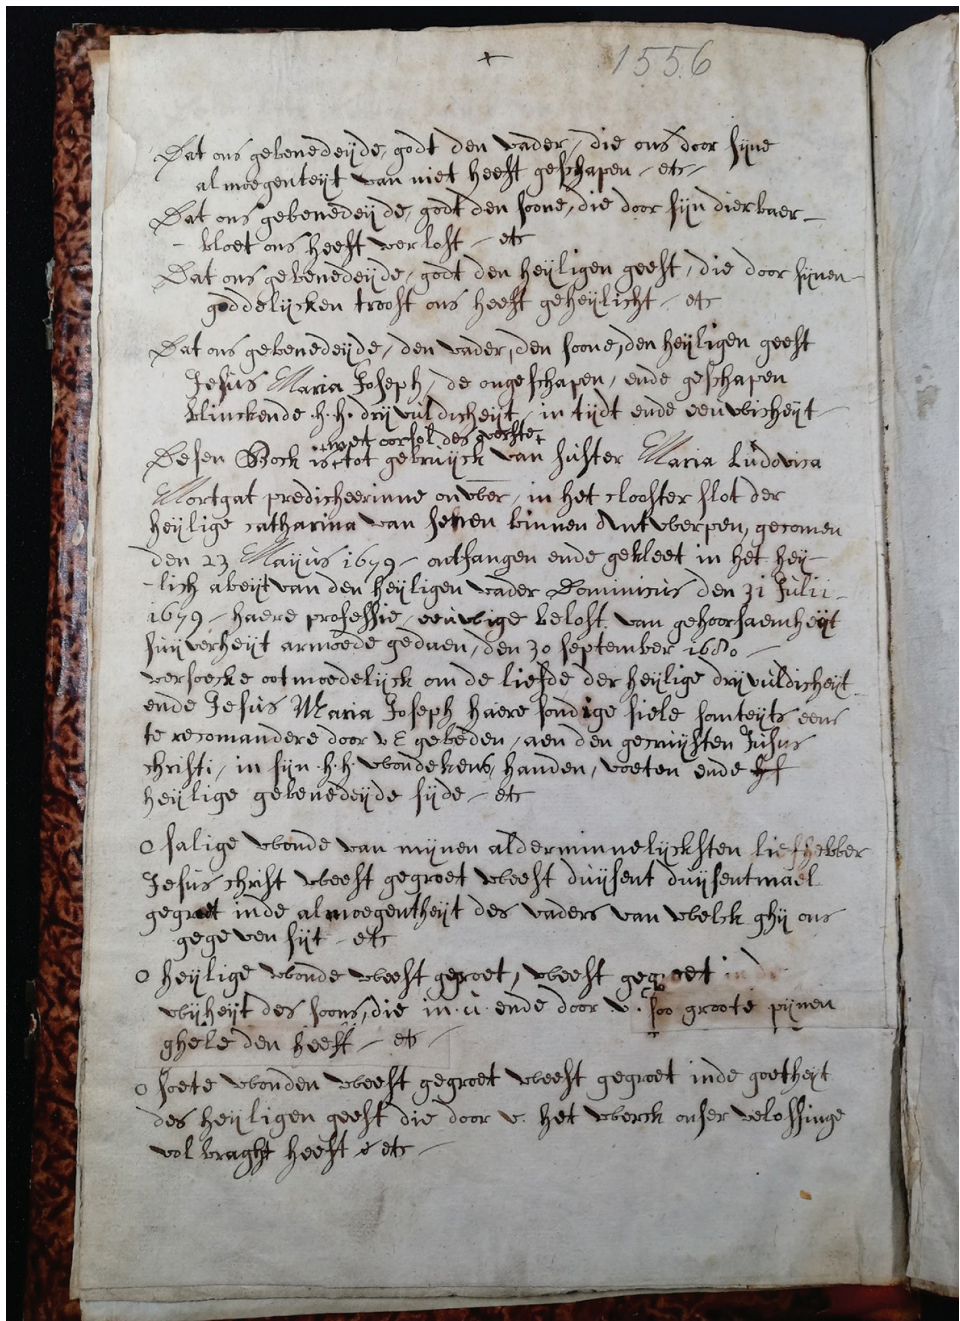 + 1556
Dat ons gebenedeyde, godt den vader, die ons door syne
almoegenteyt van niet heeft geschapen - etc -
Dat ons gebenedeyde, godt den soone, die door syn dierbaer -
- bloet ons heeft verlost - etc
Dat ons gebenedeyde, godt den heyligen geest, die door synen -
goddelycken troost ons heeft geheylicht - etc
Dat ons gebenedeyde, den vader, den soone, den heyligen geest
Jesus Maria Joseph, de ongeschapen, ende geschapen
blinckende .h.h. dryvuldicheyt, in tydt ende eeuwicheyt -
met oorlof des
Desen Boeck is tot gebruyck van suster Maria Ludovica
Mortgat predicheerinne onwer, in het clooster slot der
heylige catharina van senen binnen Antwerpen, gecomen
den 23 Mayus 1679 - ontfangen ende gekleet in het hey -
- lich abeyt van den heyligen vader Dominicus den 31 Julii -
1679 - haere professie, eeuwige belost van gehoorsaemheyt
suyverheyt armoede gedaen, den 30 september 1680 -
versoecke ootmoedelyck om de liefde der heylige dryvuldicheyt
ende Jesus Maria Joseph haere sondige siele santeyts eens
te recomandere door v E gebeden, aen den gecruysten Jesus
christi, in syn .h.h. wondekens, handen, voeten ende
heylige gebenedeyde syde - etc
O salige wonde van mynen alderminnelycksten liefhebber
Jesus christ weest gegroet weest duysent duysentmael
gegroet inde almoegentheyt des vaders van welck ghy ons
gegeven syt - etc
O heylige wonde weest gegroet, weest gegroet in de
wysheyt des soons, die in .u. ende door v. soo groote pynen
gheleden heeft - etc -
O soete wonden weest gegroet weest gegroet inde goetheyt
des heyligen geest die door v. het werck onser velossinge
volbraght heeft etc -